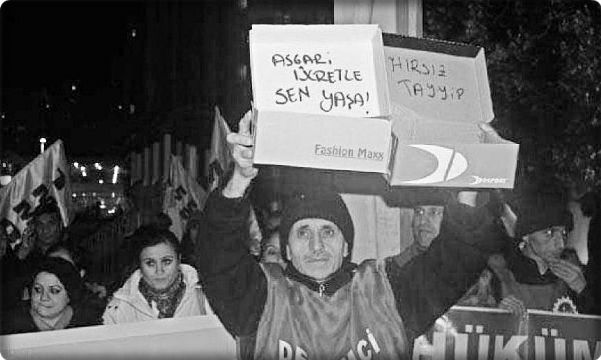 ASGARİ
ÜCRETLE
SEN YAŞA!
HIRSIZ
TAYYİP
Fashion Maxx
DESPOR
HÜKÜM